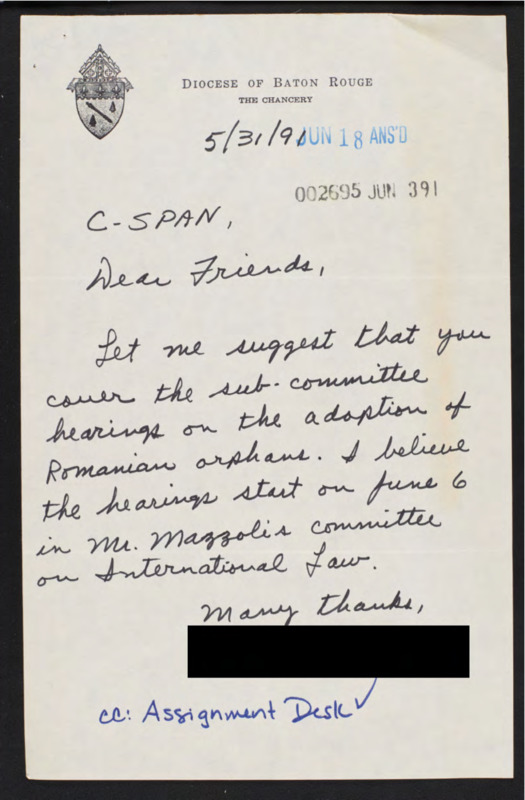 DIOCESE OF BATON ROUGE
THE CHANCERY
5/31/91 JUN 18 ANS'D
002695 JUN 391
C-SPAN,
Dear Friends,
Let me suggest that you
cover the sub-committee
hearings on the adoption of
Romanian orphans. I believe
the hearings start on June 6
in Mr. Mazzoli's committee
on International Law.
Many thanks,
cc: Assignment Desk